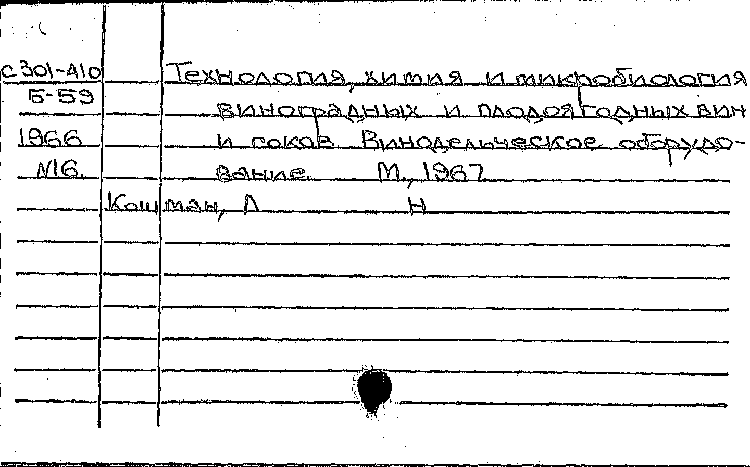 С301-410 Технология, химия и микробиология
Б-59 виноградных и плодоягодных вин
1966 и соков. Винодельческое оборудо-
N16. вание. М., 1967
Кошман, Л Н